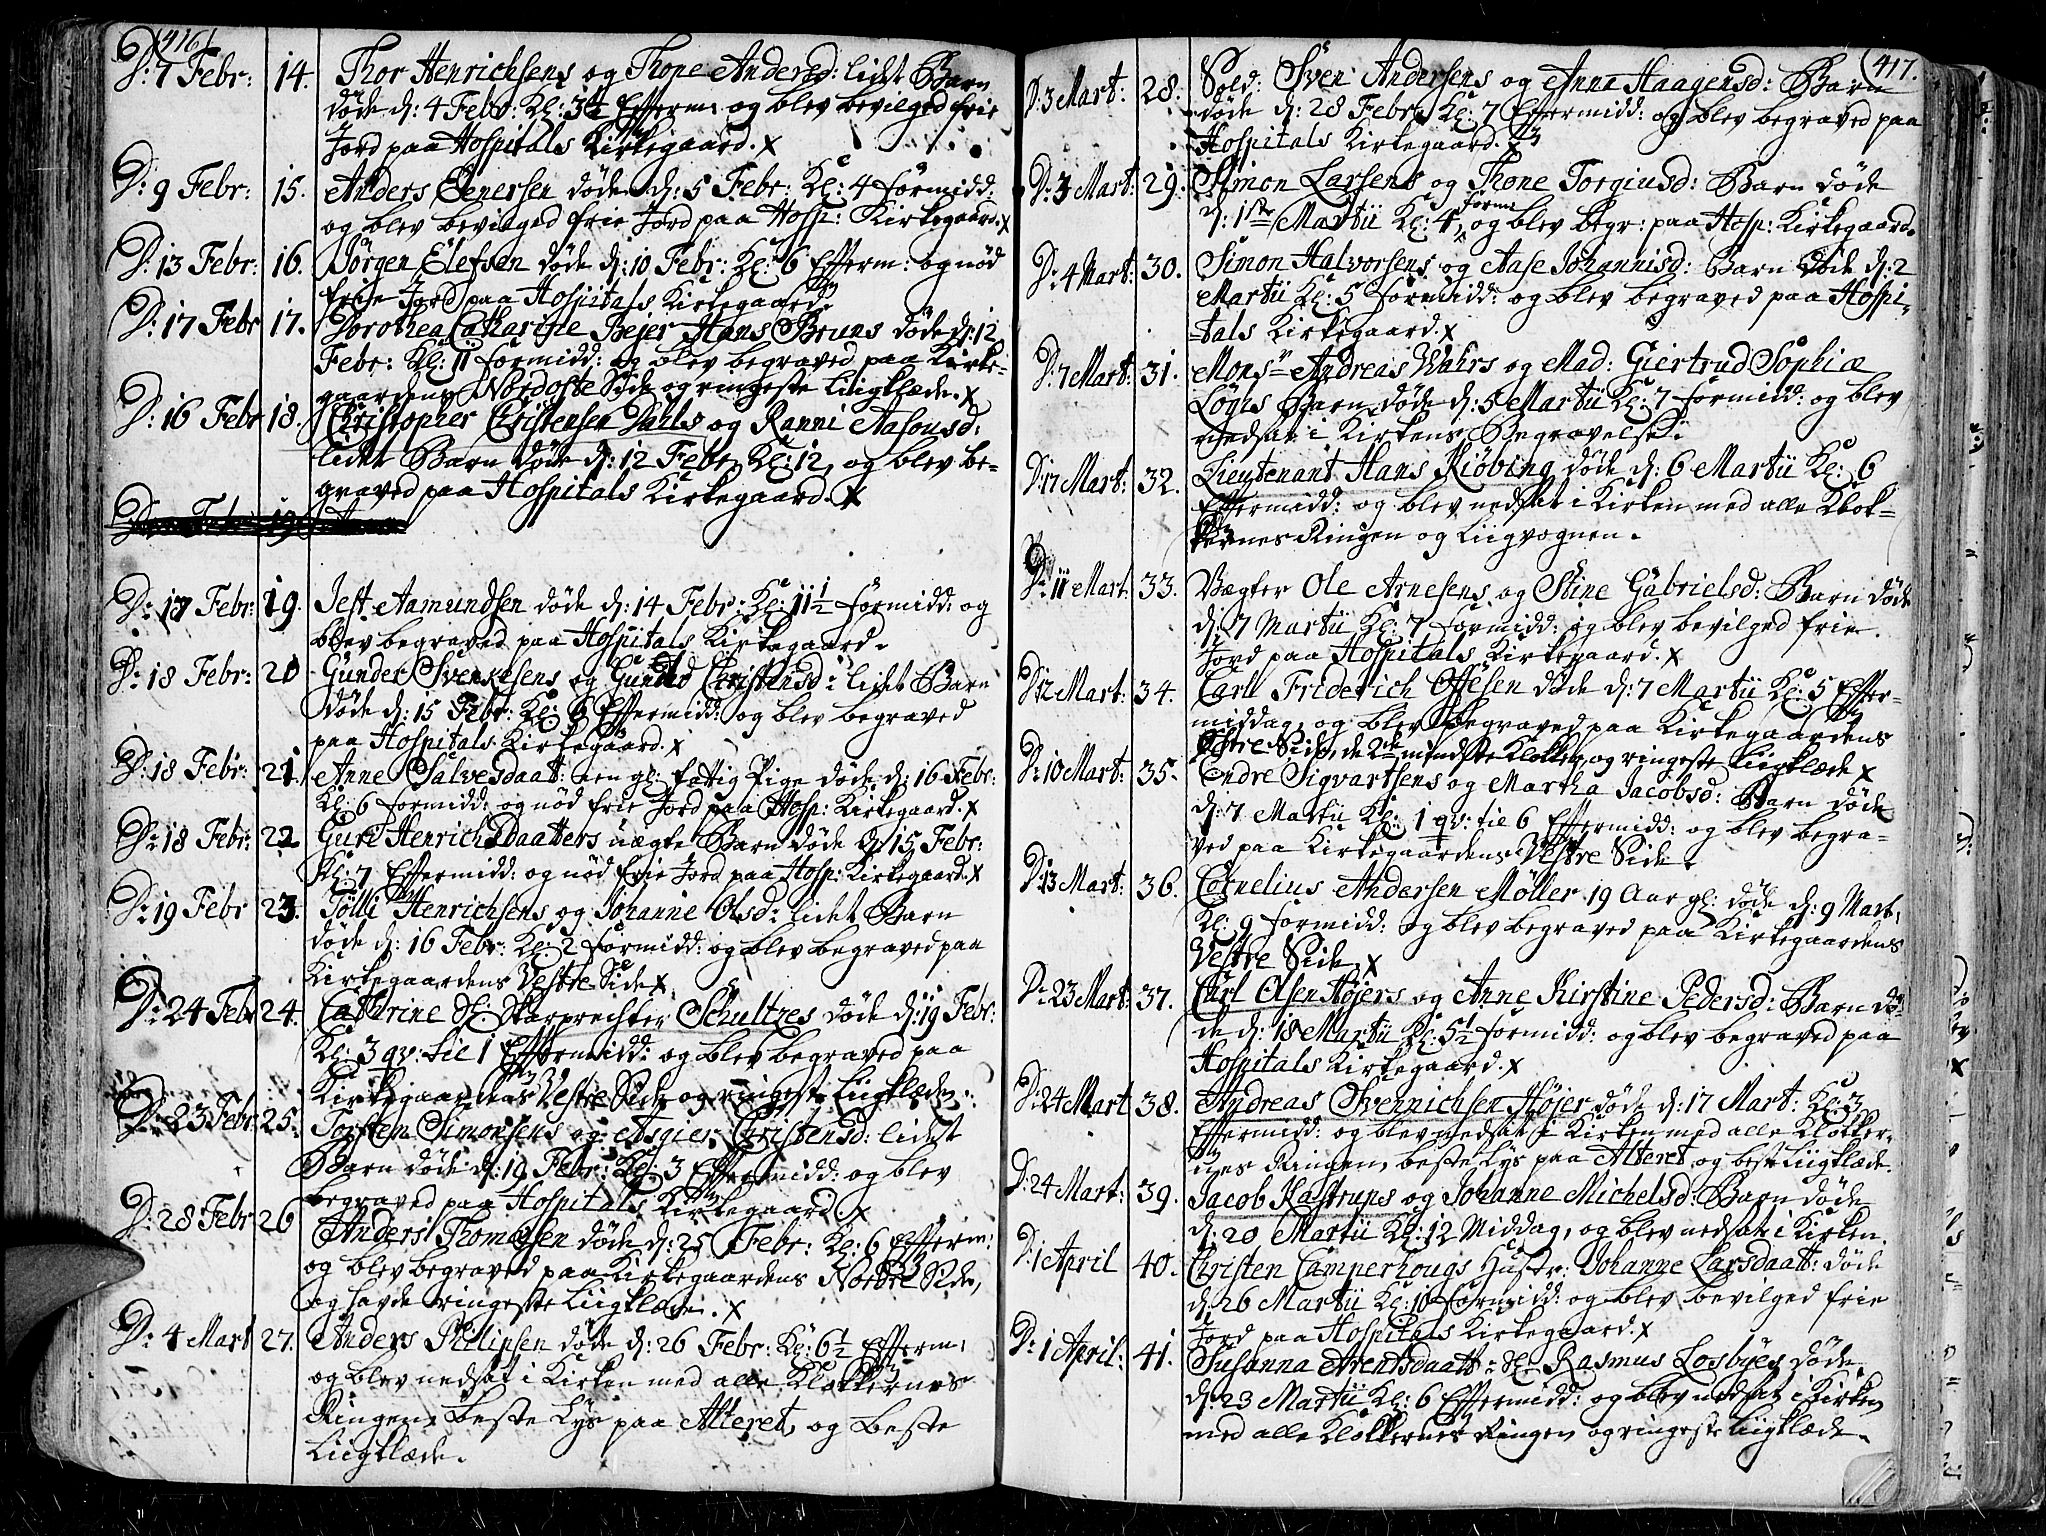 416.
D: 7 Febr: 14. Thor Henrichsens og Thone Andersd: lidet Barn
døde d: 4 Febr: Kl: 3½ Efterm: og blev bevilged frie
Jord paa Hospitals Kirkegaard. X
D: 9 Febr: 15. Anders Eenersen døde d: 5 Febr: Kl: 4 formidd:
og blev bevilged frie Jord paa Hosp: Kirkegaard. X
D: 13 Febr: 16. Jørgen Elefsen døde d: 10 Febr: Kl: 6 Efterm: og nød
frie Jord paa Hospitals Kirkegaard.
D: 17 Febr 17. Dorothea Catharine Bejer Hans Bruns døde d: 12
Febr: Kl: 11 formidd: og blev begraved paa Kirke-
gaardens Nordoste Side og ringeste Liigklæde. X
D: 16 Febr 18. Christopher Christensen Dahls og Ranni Aasousd:
lidet Barn døde d: 12 Febr Kl: 12, og blev be-
graved paa Hospitals Kirkegaard. X
D: 17 Febr: 19. Jest Aamundsen døde d: 14 Febr: Kl: 11½ formidd: og
blev begraved paa Hospitals Kirkegaard.
D: 18 Febr: 20 Gunder Svensens og Gunild Christensd: lidet Barn
døde d: 15 Febr: Kl: 6 Eftermidd: og blev begraved
paa Hospitals Kirkegaard. X
D: 18 Febr: 21. Anne Salvesdaat: een gl: fattig Pige døde d: 16 Febr:
Kl: 6 formidd: og nød frie Jord paa Hosp: Kirkegaard. X
D: 18 Febr: 22 Guri Henrichsdaatters uægte Barn døde d: 15 Febr:
Kl: 7 Eftermidd: og nød frie Jord paa Hosp: Kirkegaard. X
D: 19 Febr 23. Tølli Henrichsens og Johanne Olsd: lidet Barn
døde d: 16 Febr: Kl: 2 formidd: og blev begraved paa
Kirkegaardens Vestre Side X
D: 24 Febr 24. Cathrine Sl: Skarprechter Schultzes døde d: 19 Febr:
Kl: 3 qv: til 1 Eftermidd: og blev begraved paa
Kirkegaardens Vestre Side og ringeste Liigklæde.
D: 23 Febr: 25. Torsten Simonsens og Asgier Christensd: lidet
Barn døde d: 19 Febr: Kl: 3 Eftermidd: og blev
begraved paa Hospitals Kirkegaard. X
D: 28 Febr 26 Anders Thomesen døde d: 25 Febr: Kl: 6 Efterm:
og blev begraved paa Kirkegaardens Nordre Side,
og havde ringeste Liigklæde. X
D: 4 Mart 27. Anders Philipsen døde d: 26 Febr: Kl: 6½ Efterm:
og blev nedsat i Kirken med alle Klokkernes
Ringen, beste Lys paa Alteret, og Beste
Liigklæde.
417.
D: 3 Mart: 28. Sold: Sven Andersens og Anne Haagensd: Barn
døde d: 28 Febr Kl: 7 Eftermidd: og blev begraved paa
Hospitals Kirkegaard. X
D: 3 Mart: 29. Simon Larsens og Thone Torgiusd: Barn døde
d: 1ste Martii Kl: 4 form: og blev begr: paa Hosp: Kirkegaard.
D: 4 Mart: 30. Simon Halvorsens og Aase Johannisd: Barn døde d: 2
Martii Kl: 5 formidd: og blev begraved paa Hospi-
tals Kirkegaard. X
D: 7 Mart: 31. Monsr Andreas Wahrs og Mad: Giertrud Sophiæ
Løghs Barn døde d: 5 Martii Kl: 7 formidd: og blev
nedsat i Kirkens Begravelse:
D: 17 Mart: 32. Lieutenant Hans Kiøbing døde d: 6 Martii Kl: 6
Eftermidd: og blev nedsat i Kirken med alle Klok-
kernes Ringen og Liigvognen.
D: 11 Mart. 33. Vægter Ole Arnesens og Stine Gabrielsd: Barn døde
d: 7 Martii Kl: 7 formidd: og blev bevilged frie
Jord paa Hospitals Kirkegaard. X
D: 12 Mart: 34. Carl Friderich Ottesen døde d: 7 Martii Kl: 5 Efter-
middag, og blev begraved paa Kirkegaardens
Østre Side, de 2de mindste Klokker, og ringeste Liigklæde X
D: 10 Mart: 35. Endre Sigvartsens og Martha Jacobsd: Barn døde
d: 7 Martii Kl: 1 qv: til 6 Eftermidd: og blev begra-
ved paa Kirkegaardens Vestre Side.
D: 13 Mart: 36. Cornelius Andersen Møller 19 Aar gl: døde d: 9 Mart:
Kl: 9 formidd: og blev begraved paa Kirkegaardens
Vestre Side. X
D: 23 Mart: 37. Carl Olsen Højers og Anne Kirstine Pedersd: Barn dø-
de d: 18 Martii Kl: 5½ formidd: og blev begraved paa
Hospitals Kirkegaard. X
D: 24 Mart 38. Andreas Svennichsen Højer døde d: 17 Mart: Kl: 3
Eftermidd: og blev nedsat i Kirken med alle Klokker-
nes Ringen, beste Lys paa Alteret, og beste Liigklæde.
D: 24 Mart: 39. Jacob Kastrups og Johanne Michelsd: Barn døde
d: 20 Martii Kl: 12 Middag, og blev nedsat i Kirken.
D: 1 April 40. Christen Camperhougs Hustr: Johanne Larsdaatt: døde
d: 26 Martii Kl: 10 formidd: og blev bevilged frie
Jord paa Hospitals Kirkegaard. X
D: 1 April: 41. Susanna Arentsdaatt: Sl: Rasmus Losbyes døde
d: 23 Martii Kl: 6 Eftermidd: og blev nedsat i Kirken
med alle Klokkernes Ringen og ringeste Liigklæde.